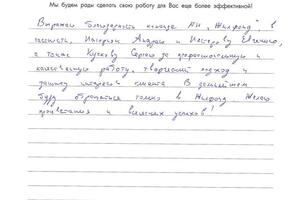 Мы будем рады сделать свою работу для Вас еще более эффективной!
Выражаю благодарность команде АН "Жилфонд", в
частности, Андрею и Нестерову Евгению,
а также Сергею за профессиональную и
качественную работу, творческий подход и
защиту интересов клиента. В дальнейшем
буду обращаться только в Жилфонд. Желаю
процветания и всяческих успехов!